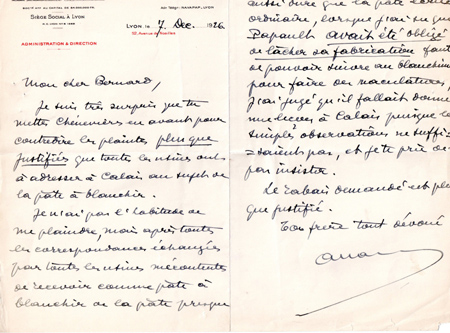 SIÈGE SOCIAL À LYON
ADMINISTRATION & DIRECTION
LYON, le 7 Dec. 1926
Mon cher Bernard,
Je suis très surpris que tu
mettes Chènevière en avant pour
contredire les plaintes plus que
justifiées que toutes les usines ont
à adresser à Calais au sujet de
la pâte à blanchir.
Je n'ai pas l'habitude de
me plaindre, mais après toutes
les correspondances échangées
par toutes les usines mécontentes
de recevoir comme pâte à
blanchir de la pâte presque
aussi dure que la pâte
ordinaire, lorsque j'ai su que
Papault avait été obligé
de lâcher sa fabrication faute
de pouvoir suivre au blanchiment
pour faire des maculatures,
j'ai jugé qu'il fallait
à Calais puisque les
simples observations ne suffi=
=saient pas, et je te prie de
pas insister.
Le rabais demandé est plus
que justifié.
Ton frère tout dévoué